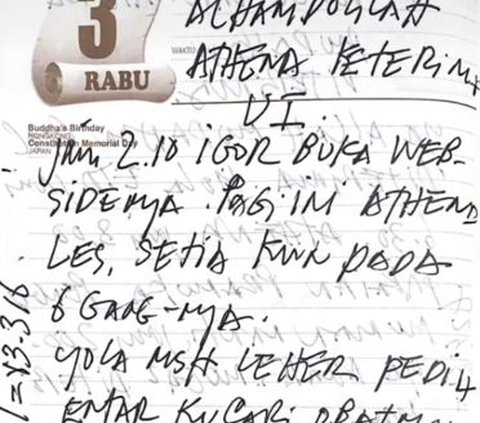 3
RABU
WAKTU
ALHAMDOLLAH
ATHENA KETERIMA
UI.
Buddha's Birthday
HONGKONG
Constitution Memorial Day
JAPAN
JAM 2.10 IGOR BUKA WEB-
SIDENYA. PAGI INI ATHENA
LES, SETIA KWN PADA
6 GANG-NYA.
YOLA MSH LEHER PEDIH
ENTAR KUCARI OBATNYA